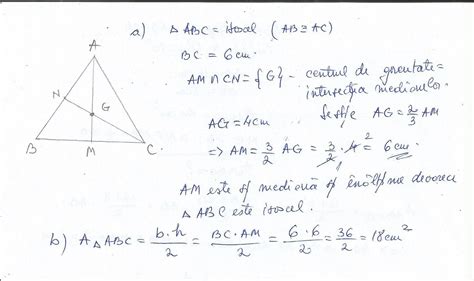 a) △ ABC = isoscel (AB ≅ AC)
BC = 6 cm.
A
AM ∩ CN = {G} - centrul de greutate =
intersecția medianelor.
N
G
AG = 4cm
Se știe AG = 2/3 AM
⇒ AM = 3/2 AG = 3/2 · 4² = 6 cm.
B
M
C
AM este și mediană și înălțime deoarece
△ ABC este isoscel.
b) A△ABC = b·h/2 = BC·AM/2 = 6·6/2 = 36/2 = 18cm²